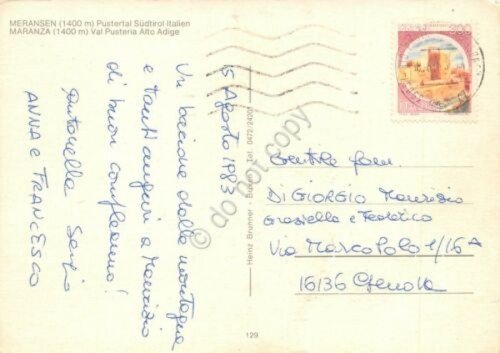 MERANSEN (1400 m) Pustertal Südtirol-Italien
MARANZA (1400 m) Val Pusteria Alto Adige
15 Agosto 1983
Un bacione dalla montagna
e tanti auguri a Maurizio
di buon compleanno!
Antonella Sergio
ANNA e FRANCESCO
Heinz Brunner - Tel. 0472/24001
129
do not copy
200
Gentile fam.
DI GIORGIO Maurizio
Graziella e Federico
Via Marco Polo 1/15A
16136 Genova